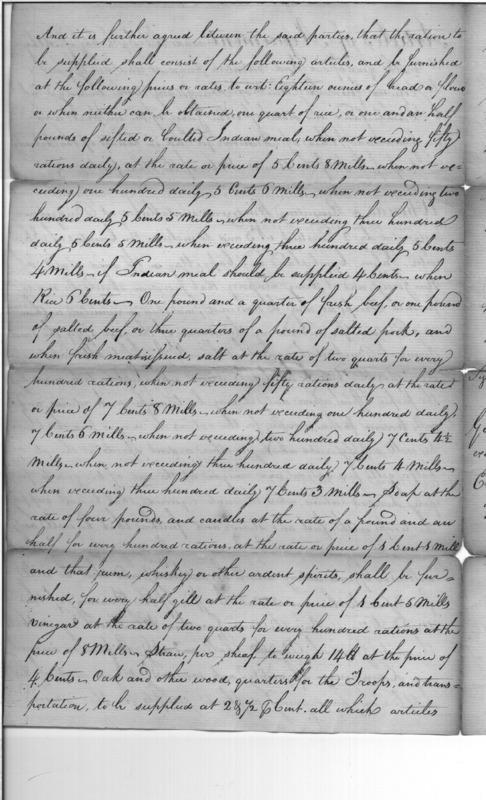 And it is further agreed between the said parties, that the ration to
be supplied shall consist of the following articles, and be furnished
at the following prices or rates, to wit: Eighteen ounces of bread or flour
or when neither can be obtained, one quart of rice, or one and an half
pounds of sifted or boulted Indian meal, when not exceeding fifty
rations daily, at the rate or price of 5 Cents 8 Mills – when not ex=
ceeding one hundred daily 5 Cents 6 Mills – when not exceeding two
hundred daily 5 Cents 5 Mills – when not exceeding three hundred
daily 5 Cents 5 Mills – when exceeding three hundred daily 5 Cents
4 Mills – if Indian meal should be supplied 4 Cents – when
Rice 6 Cents – One pound and a quarter of fresh beef, or one pound
of salted beef, or three quarters of a pound of salted pork, and
when fresh meat is issued, salt at the rate of two quarts for every
hundred rations, when not exceeding fifty rations daily at the rate
or price of 7 Cents 8 Mills – when not exceeding one hundred daily,
7 Cents 6 Mills – when not exceeding two hundred daily 7 Cents 4½
Mills – when not exceeding three hundred daily, 7 Cents 4 Mills –
when exceeding three hundred daily 7 Cents 3 Mills – Soap at the
rate of four pounds, and candles at the rate of a pound and an
half for every hundred rations, at the rate or price of 1 Cent 1 Mill
and that rum, whiskey or other ardent spirits, shall be fur=
nished, for every half gill at the rate or price of 1 Cent 6 Mills
vinegar at the rate of two quarts for every hundred rations at the
price of 8 Mills – Straw, per sheaf, to weigh 14 lb at the price of
4 Cents – Oak and other wood, quarters for the Troops, and trans=
portation, to be supplied at 2½ ⅌ Cent. all which articles